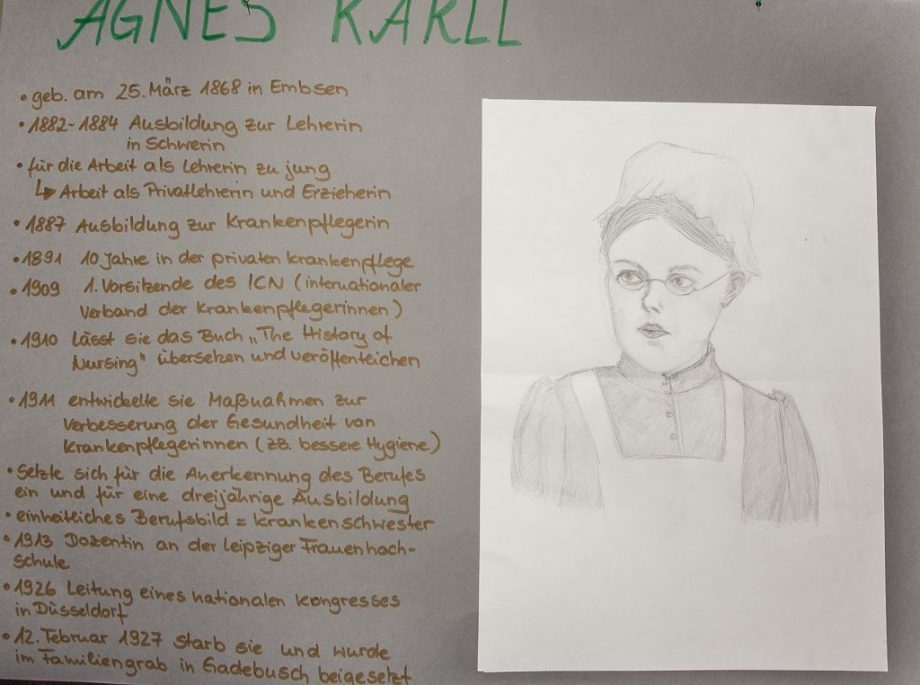 AGNES KARLL
• geb. am 25. März 1868 in Embsen
• 1882-1884 Ausbildung zur Lehrerin
in Schwerin
• für die Arbeit als Lehrerin zu jung
↳ Arbeit als Privatlehrerin und Erzieherin
• 1887 Ausbildung zur Krankenpflegerin
• 1891 10 Jahre in der privaten Krankenpflege
• 1909 1. Vorsitzende des ICN (internationaler
Verband der Krankenpflegerinnen)
• 1910 lässt sie das Buch „The History of
Nursing" übersetzen und veröffentlichen
• 1911 entwickelte sie Maßnahmen zur
Verbesserung der Gesundheit von
Krankenpflegerinnen (zB. bessere Hygiene)
• Setzte sich für die Anerkennung des Berufes
ein und für eine dreijährige Ausbildung
• einheitliches Berufsbild = Krankenschwester
• 1913 Dozentin an der Leipziger Frauenhoch-
schule
• 1926 Leitung eines nationalen Kongresses
in Düsseldorf
• 12. Februar 1927 starb sie und wurde
im Familiengrab in Gadebusch beigesetzt